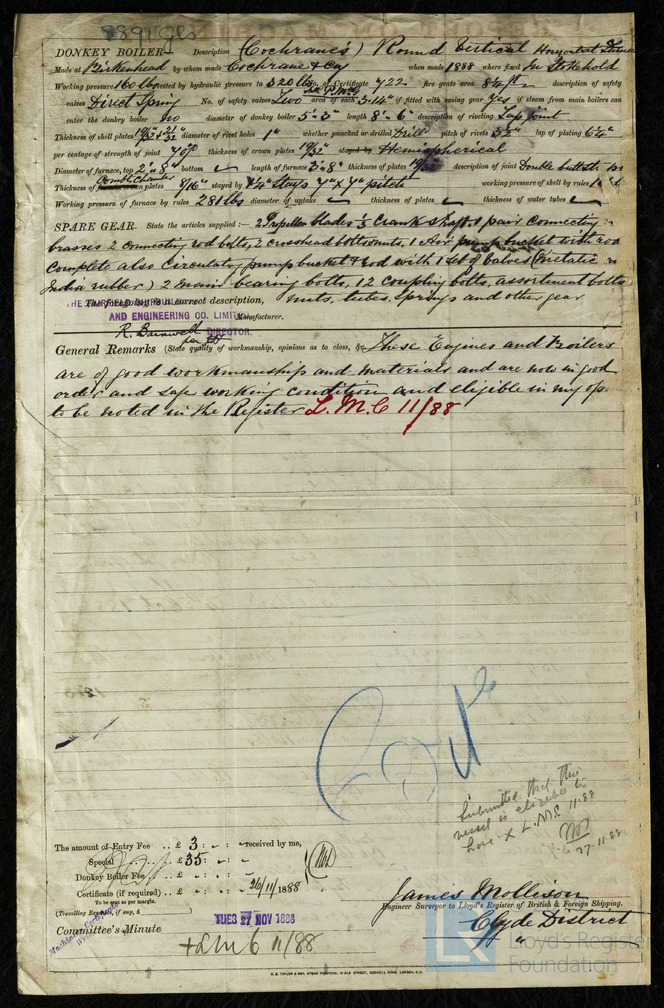 8891 Gls
DONKEY BOILER— Description (Cochrane's) Round Vertical Horizontal
Made at Birkenhead by whom made Cochrane & Co when made 1888 where fixed In Stokehold
Working pressure 160 lbs tested by hydraulic pressure to 320 lbs No. of Certificate 722 fire grate area description of safety
valves Direct Spring No. of safety valves Two area of each 3.14" if fitted with easing gear Yes if steam from main boilers can
enter the donkey boiler no diameter of donkey boiler 5'-3" length 8'-6" description of riveting Lap joint
Thickness of shell plates diameter of rivet holes 1" whether punched or drilled Drill pitch of rivets lap of plating 6¼"
per centage of strength of joint 70% thickness of crown plates 19/32" stayed by Hemispherical
Diameter of furnace, top 2'-8" bottom length of furnace 3'-8" thickness of plates description of joint Double butt
Thickness of Comb chamber plates 9/16" stayed by 1¼" Stays 7" x 7" pitch working pressure of shell by rules
Working pressure of furnace by rules 281 lbs diameter of uptake thickness of plates thickness of water tubes
SPARE GEAR. State the articles supplied:— 2 Propeller blades ⅓ Crank shaft, 1 pair connecting
brasses 2 connecting rod bolts, 2 crosshead bolts & nuts, 1 Air pump bucket with rod
Complete also Circulating pump bucket & rod with 1 set of valves (metallic &
India rubber) 2 main bearing bolts, 12 coupling bolts, assortment bolts
The foregoing is a correct description, nuts, tubes, springs and other gear
THE FAIRFIELD SHIPBUILDING
AND ENGINEERING CO. LIMITED Manufacturer.
R. Barnwell DIRECTOR.
General Remarks (State quality of workmanship, opinions as to class, &c. These Engines and Boilers
are of good workmanship and materials and are now in good
order and safe working condition and eligible in my op
to be noted in the Register L.M.C 11/88
Submitted that this
vessel is eligible to
have X L.M.C 11.88
27.11.88
The amount of Entry Fee .. £ 3 : - : - received by me,
Special .. £ 35 : - : -
Donkey Boiler Fee .. £ : :
Certificate (if required) .. £ : : 26/11/1888
To be sent as per margin.
(Travelling Expenses, if any, £ )
James Mollison
Engineer Surveyor to Lloyd's Register of British & Foreign Shipping.
Clyde District
Committee's Minute TUES 27 NOV 1888
+ LMC 11/88
Machinery Certificate
Written
LR
Lloyd's Register
Foundation